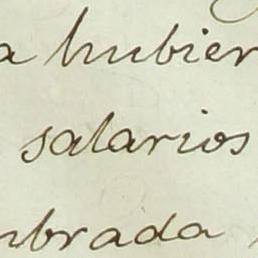 a hubier
salarios
mbrada